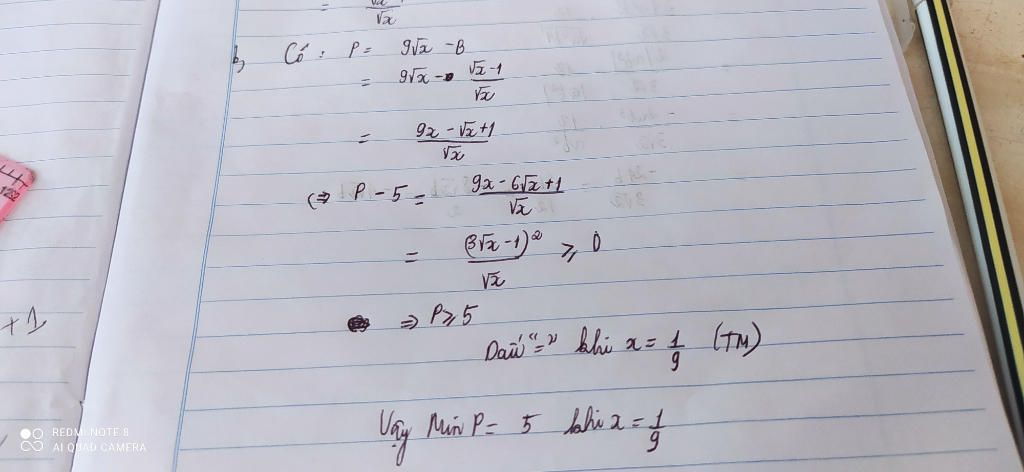 = √x
b, Có : P = 9√x - B
= 9√x - (√x-1)/√x
= (9x - √x+1)/√x
(⇒ P - 5 = (9x - 6√x+1)/√x
= (3√x - 1)²/√x ⩾ 0
⇒ P ⩾ 5
Dấu "=" khi x = 1/9 (TM)
Vậy Min P = 5 khi x = 1/9
+1
122
REDMI NOTE 8
AI QUAD CAMERA